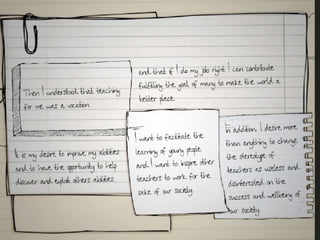 Then I understood that teaching
for me was a vocation
and that if I do my job right I can contribute
fulfilling the goal of many to make the world a
better place
It is my desire to improve my abilities
and to have the opportunity to help
discover and exploit others abilities.
I want to facilitate the
learning of young people
and I want to inspire other
teachers to work for the
sake of our society.
In addition, I desire more
than anything to change
the stereotype of
teachers as useless and
disinterested on the
success and wellbeing of
our society.